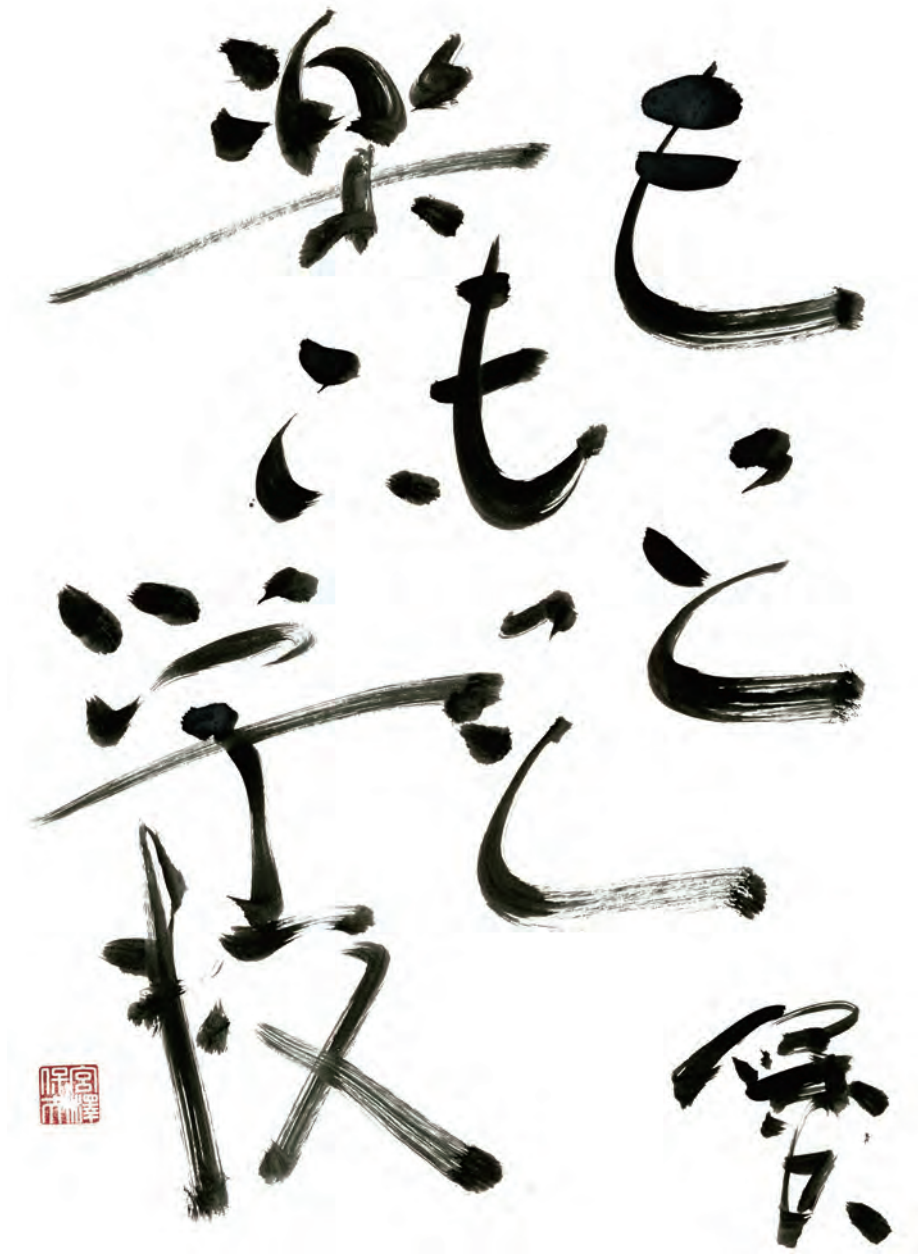 もっと
もっと
楽しい学校
宮澤
保夫